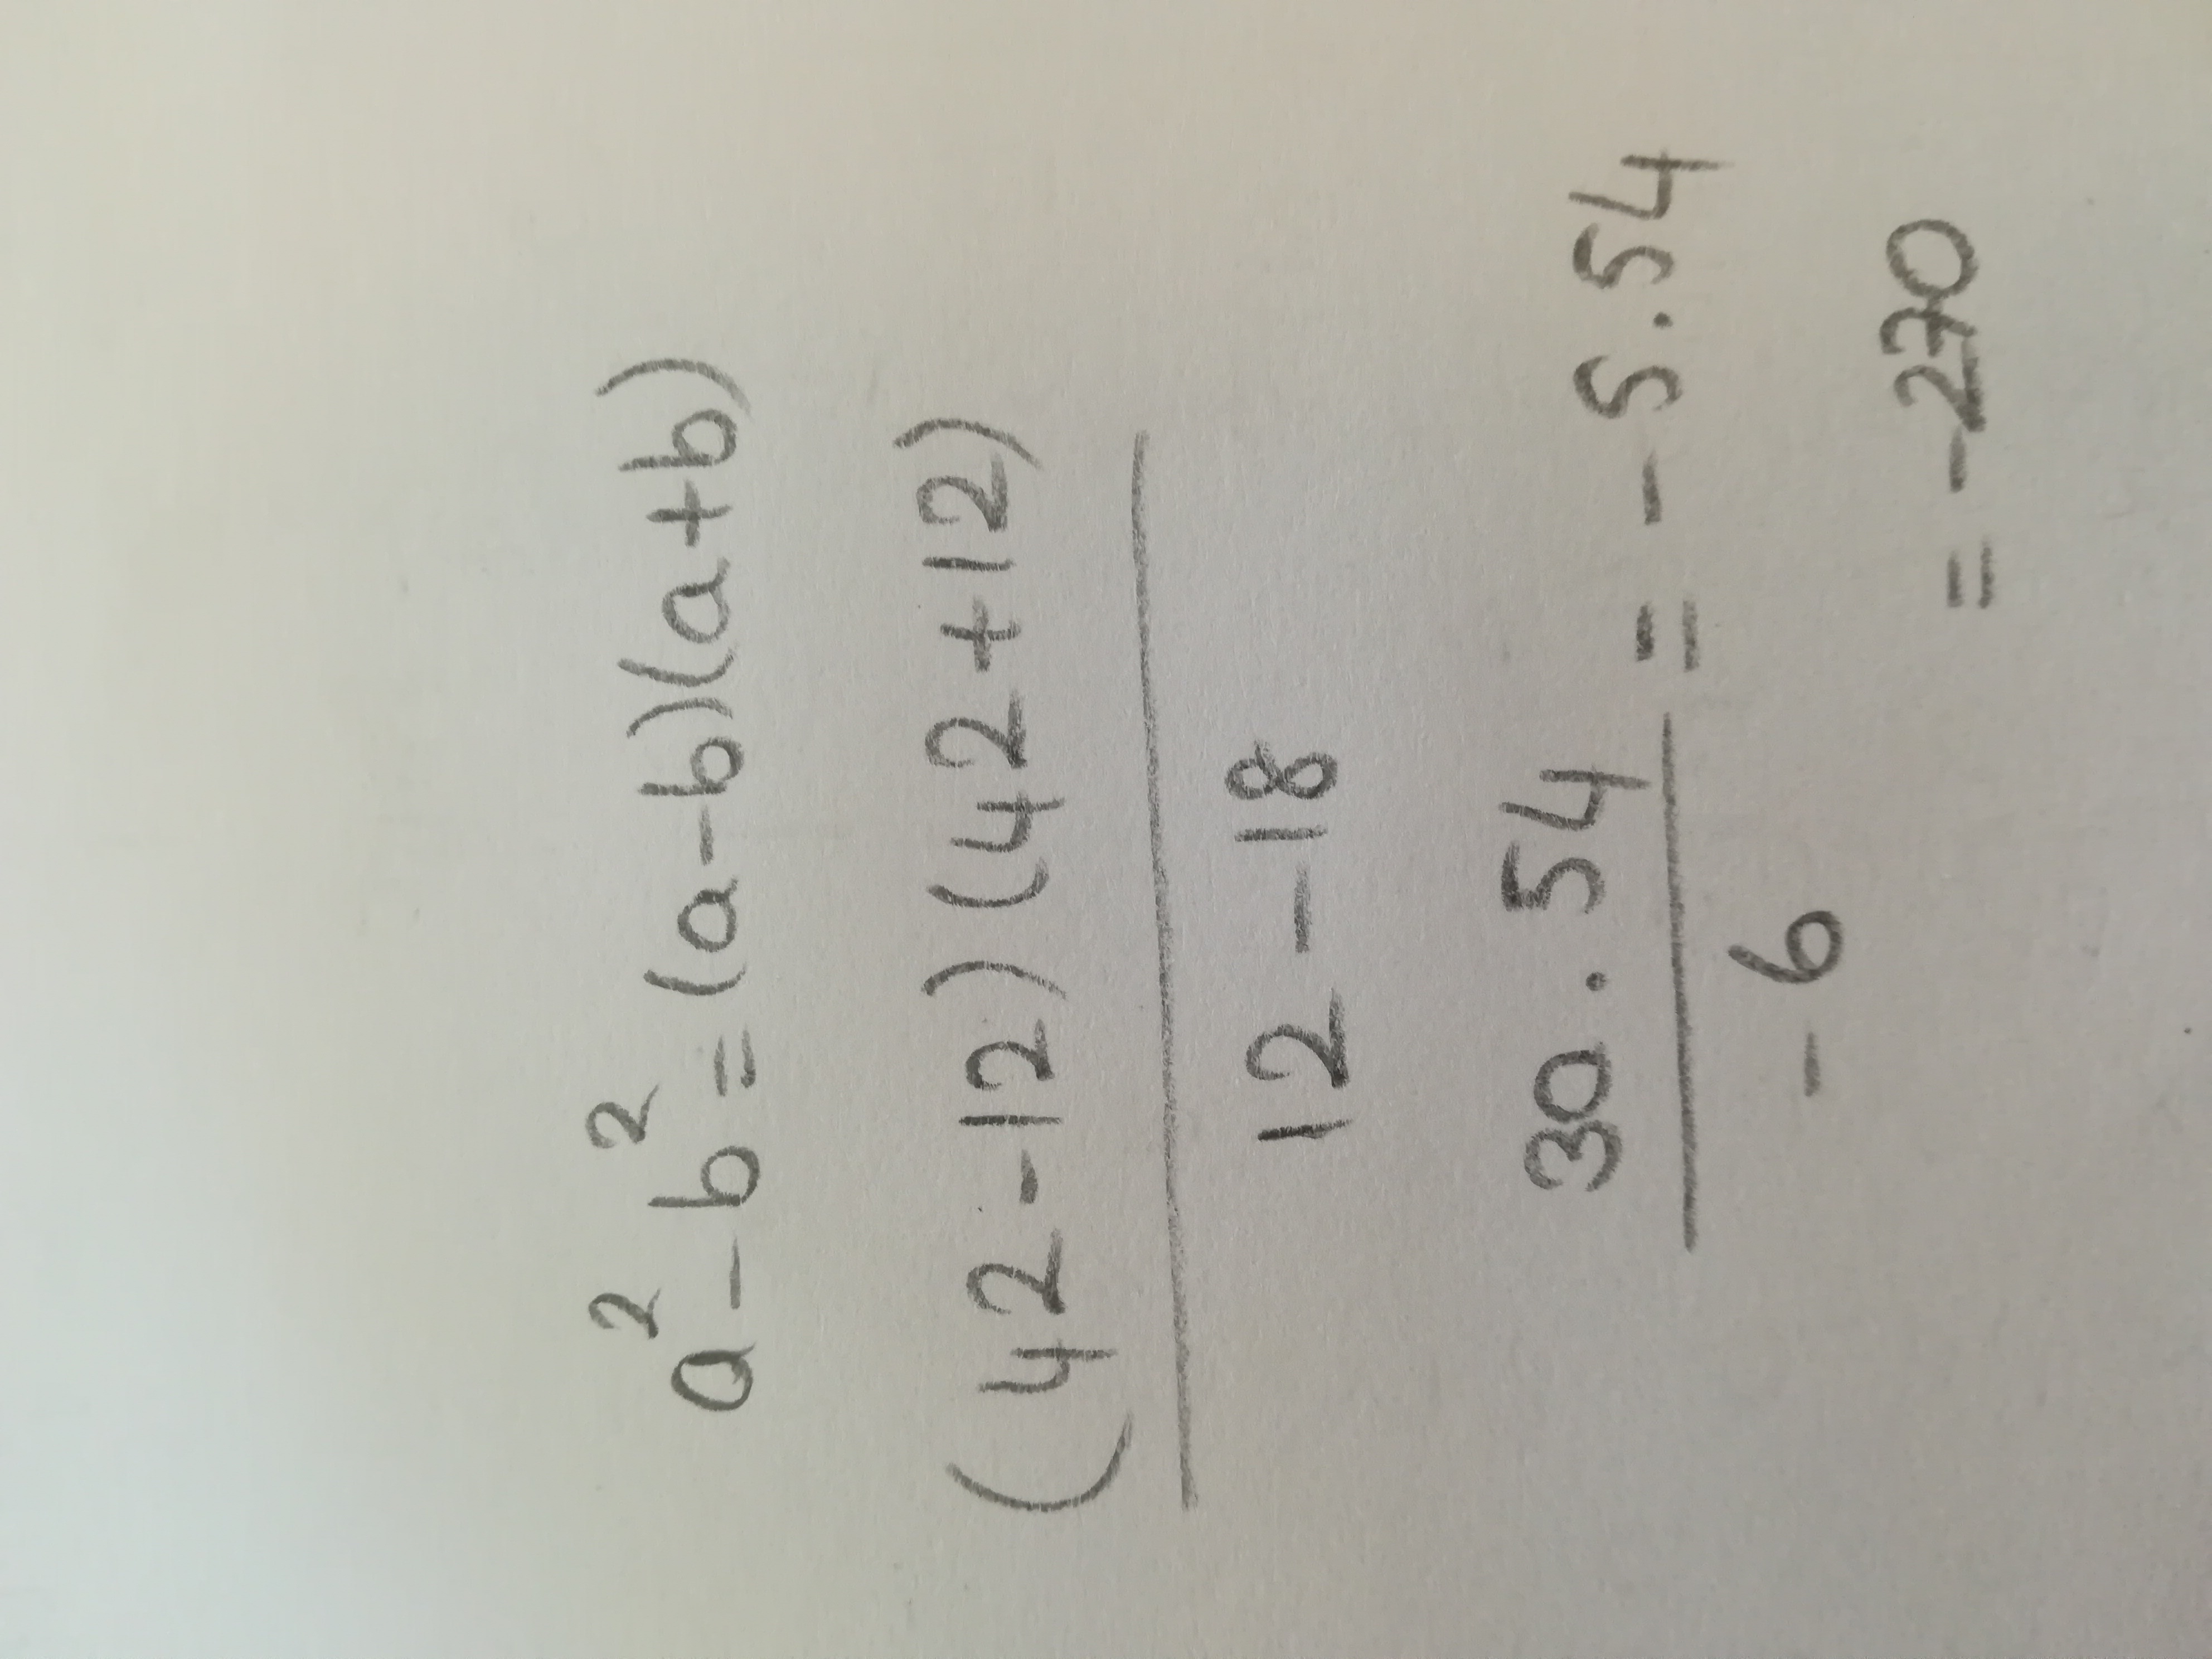 a² - b² = (a-b)(a+b)
(42-12)(42+12)
12-18
30.54 = -5.54
-6
= -270